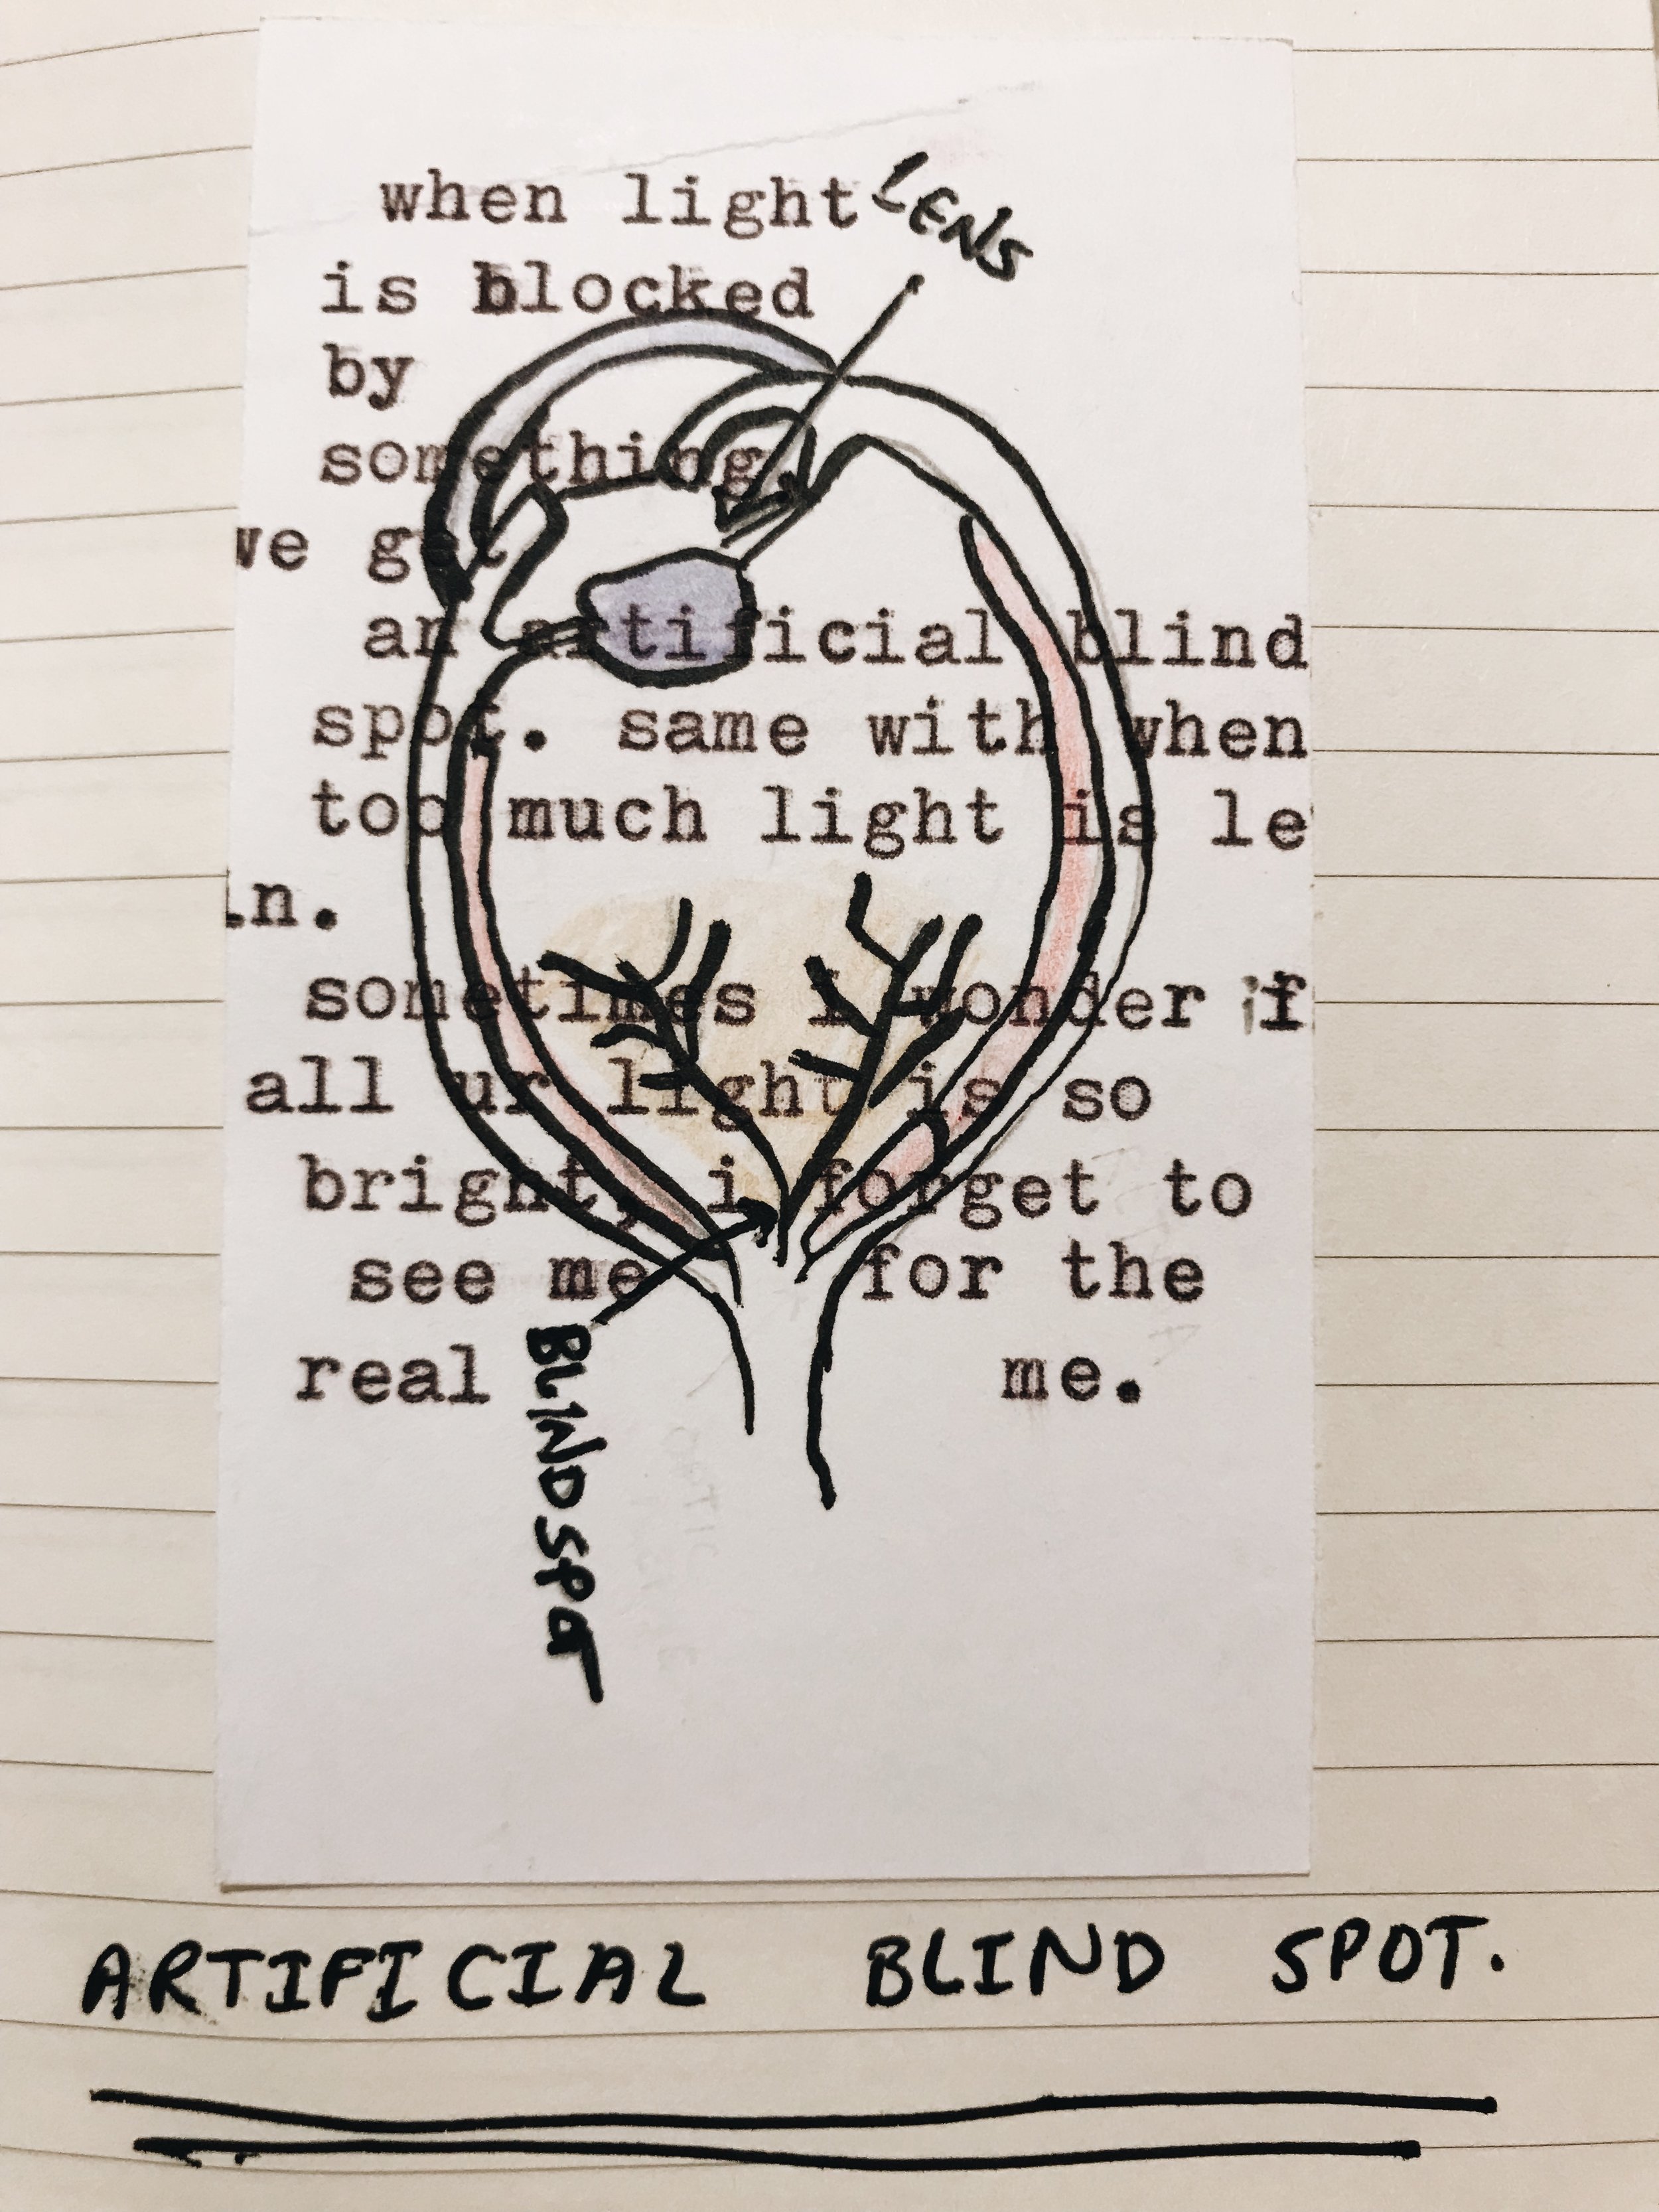 when light
LENS
is blocked
by
something,
we get
an artificial blind
spot. same with when
too much light is le
in.
sometimes i wonder if
all ur light is so
bright, i forget to
see me for the
real me.
BLINDSPOT
ARTIFICIAL BLIND SPOT.